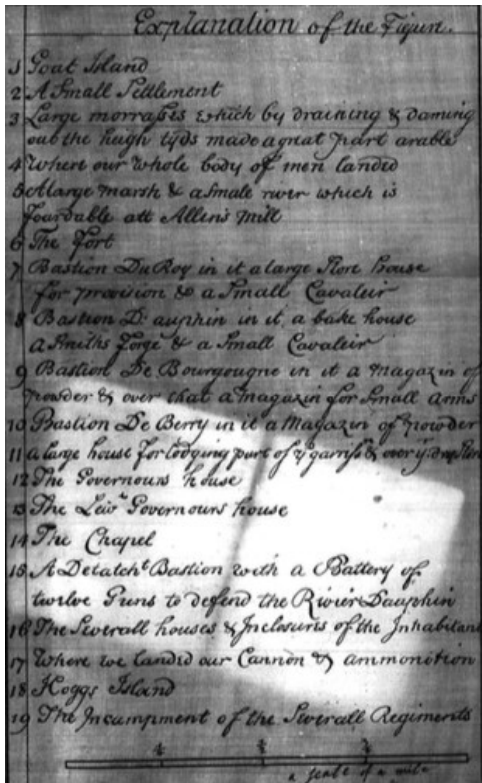 Explanation of the Figurs.
1 Goat Island
2 A Small Settlement
3 Large morrasses which by draining & daming
out the heigh tyds made a great part arable
4 Where our whole body of men landed
5 A large marsh & a smale river which is
foardable att Allens Mill
6 The Fort
7 Bastion Du Roy in it a large Store house
for provision & a Small Cavaleir
8 Bastion D'auphin in it a bake house
a Smiths Forge & a Small Cavaleir
9 Bastion De Bourgougne in it a Magazin of
powder & over that a magazin for Small Arms
10 Bastion De Berry in it a Magazin of powder
11 a large house for lodging part of ye garrisn & over ye
12 The Governours house
13 The Leivt Governours house
14 The Chapel
15 A Detatcht Bastion with a Battery of
twelve Guns to defend the Rivier Dauphin
16 The Severall houses & Inclosures of the Inhabitan
17 Where we landed our Cannon & ammonition
18 Hoggs Island
19 The Incumpment of the Severall Regiments
a scale of a mile